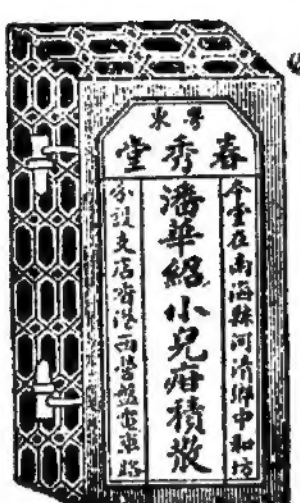 粤東
春秀堂
本堂在南海縣河清鄉中和坊
潘華紹小兒疳積散
分設支店香港西營盤電車路